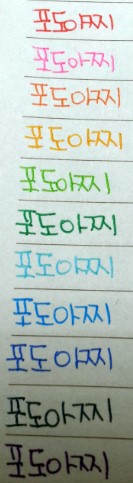 포도아찌
포도아찌
포도아찌
포도아찌
포도아찌
포도아찌
포도아찌
포도아찌
포도아찌
포도아찌
포도아찌